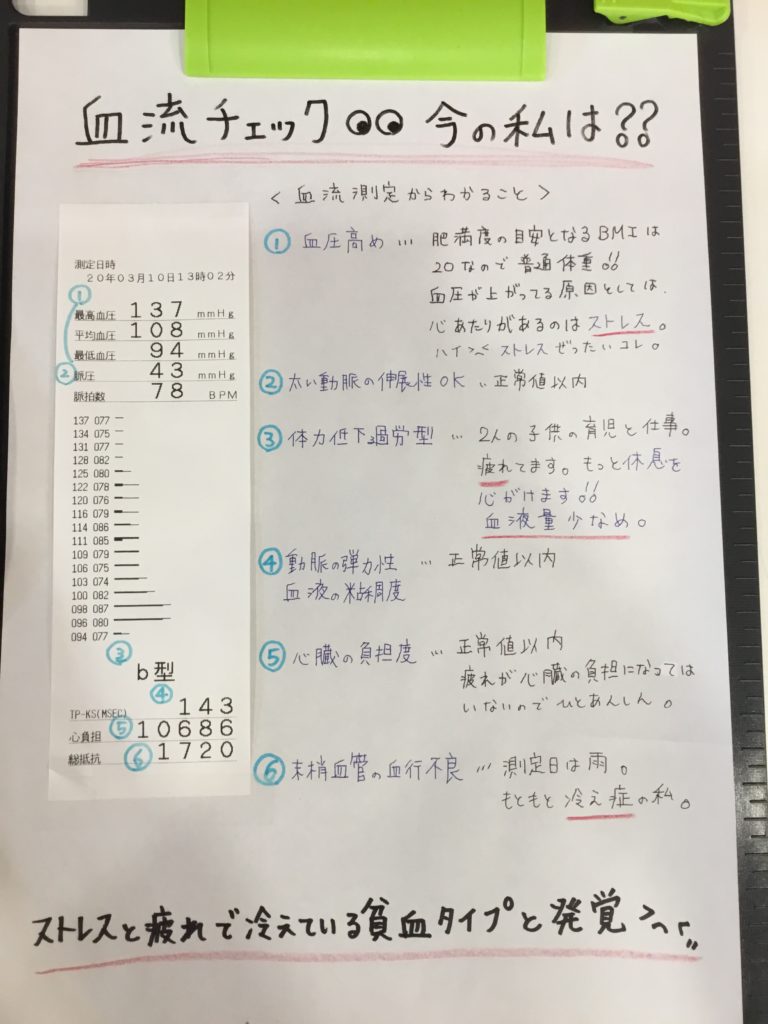 血流チェック 今の私は??
<血流測定からわかること>
測定日時
20年03月10日13時02分
①
最高血圧 137 mmHg
平均血圧 108 mmHg
最低血圧 94 mmHg
② 脈圧 43 mmHg
脈拍数 78 BPM
137 077
134 075
131 077
128 082
125 080
122 078
120 076
116 079
114 086
111 085
109 079
106 075
103 074
100 082
098 087
096 080
094 077
③
b型
④
TP-KS(MSEC) 143
心負担 ⑤ 10686
総抵抗 ⑥ 1720
① 血圧高め … 肥満度の目安となるBMIは
20なので普通体重!!
血圧が上がってる原因としては、
心あたりがあるのはストレス。
ハイ>< ストレスぜったいコレ。
② 太い動脈の伸展性OK … 正常値以内
③ 体力低下、過労型 … 2人の子供の育児と仕事。
疲れてます。もっと休息を
心がけます!!
血液量少なめ。
④ 動脈の弾力性 … 正常値以内
血液の粘稠度
⑤ 心臓の負担度 … 正常値以内
疲れが心臓の負担になっては
いないのでひとあんしん。
⑥ 末梢血管の血行不良 … 測定日は雨。
もともと冷え症の私。
ストレスと疲れで冷えている貧血タイプと発覚